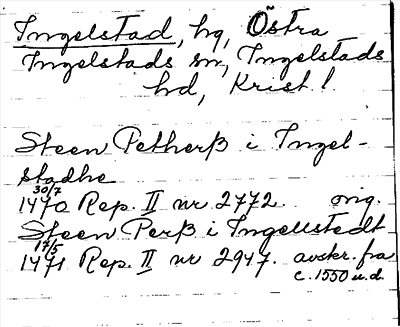 Ingelstad, hg, Östra
Ingelstads sn, Ingelstads
hd, Krist l.
Steen Petherß i Ingel-
stadhe
30/7
1470 Rep. II nr 2772. orig.
Steen Perß i Ingellstedt
17/5
1471 Rep. II nr 2947. avskr. fra
c. 1550 u.d.